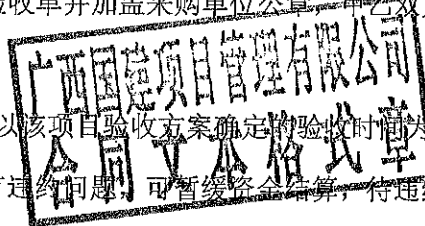 验收单并加盖采购单位公章，甲乙双
广西国建项目管理有限公司
以该项目验收方案确定的验收时间为
合同文本格式章
违约问题，可暂缓资金结算，待违约